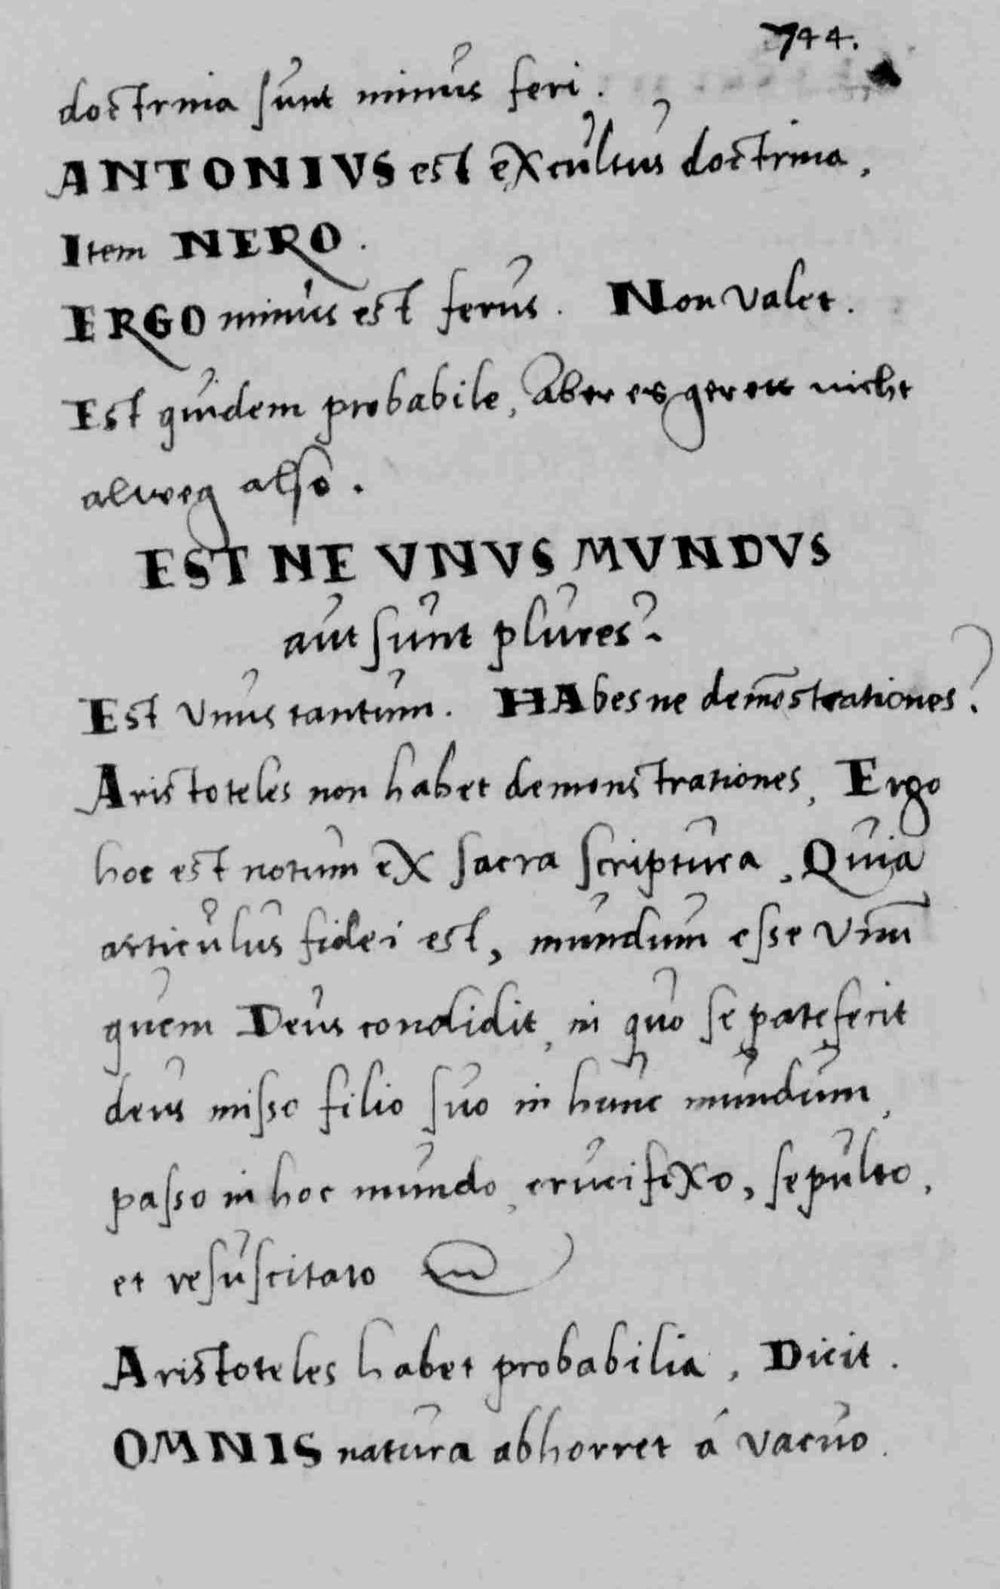 744.
doctrina sunt minus feri.
ANTONIVS est excultus doctrina,
Item NERO.
ERGO minus est ferus. Non valet.
Est quidem probabile, Aber es gerett nicht
alweg also.
EST NE UNUS MUNDUS
aut sunt plures?
Est Unus tantum. HAbes ne demōstrationes?
Aristoteles non habet demonstrationes, Ergo
hoc est notum ex sacra scriptura, Quia
articulus fidei est, mundum esse Unū
quem Deus condidit, in quo se patefecit
deus misso filio suo in hunc mundum,
passo in hoc mundo, crucifixo, sepulto,
et resuscitato
Aristoteles habet probabilia, Dicit.
OMNIS natura abhorret á vacuo.